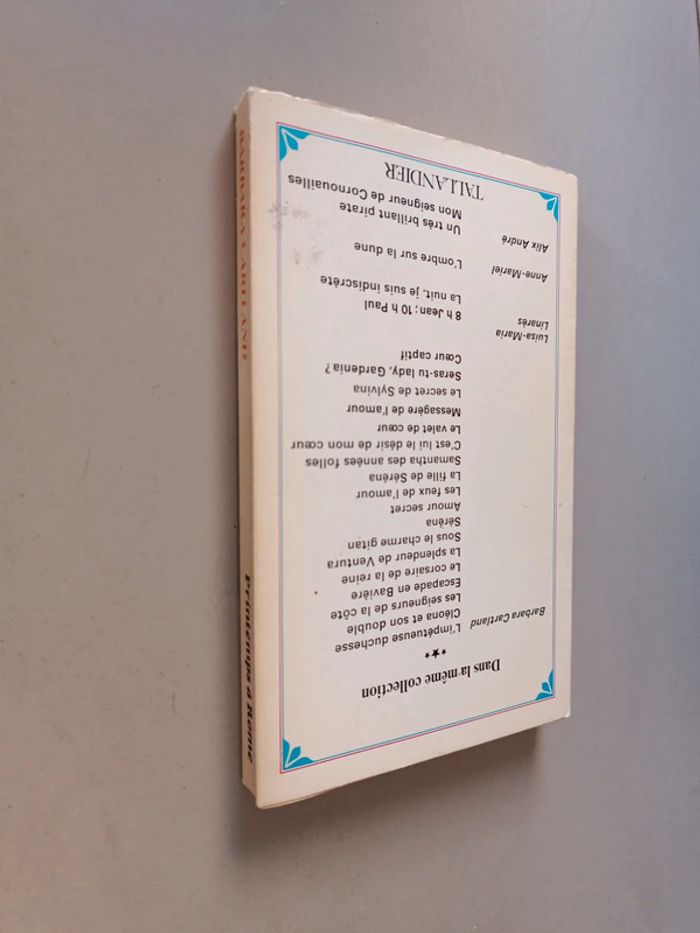 Dans la même collection
Barbara Cartland
L'impétueuse duchesse
Cléona et son double
Les seigneurs de la côte
Escapade en Bavière
Le corsaire de la reine
La splendeur de Ventura
Sous le charme gitan
Séréna
Amour secret
Les feux de l'amour
La fille de Séréna
Samantha des années folles
C'est lui le désir de mon cœur
Le valet de cœur
Messagère de l'amour
Le secret de Sylvina
Seras-tu lady, Gardenia ?
Cœur captif
Luisa-Maria
Linarès
8 h Jean ; 10 h Paul
La nuit, je suis indiscrète
Anne-Mariel
L'ombre sur la dune
Alix André
Un très brillant pirate
Mon seigneur de Cornouailles
TALLANDIER
BARBARA CARTLAND
Printemps à Rome